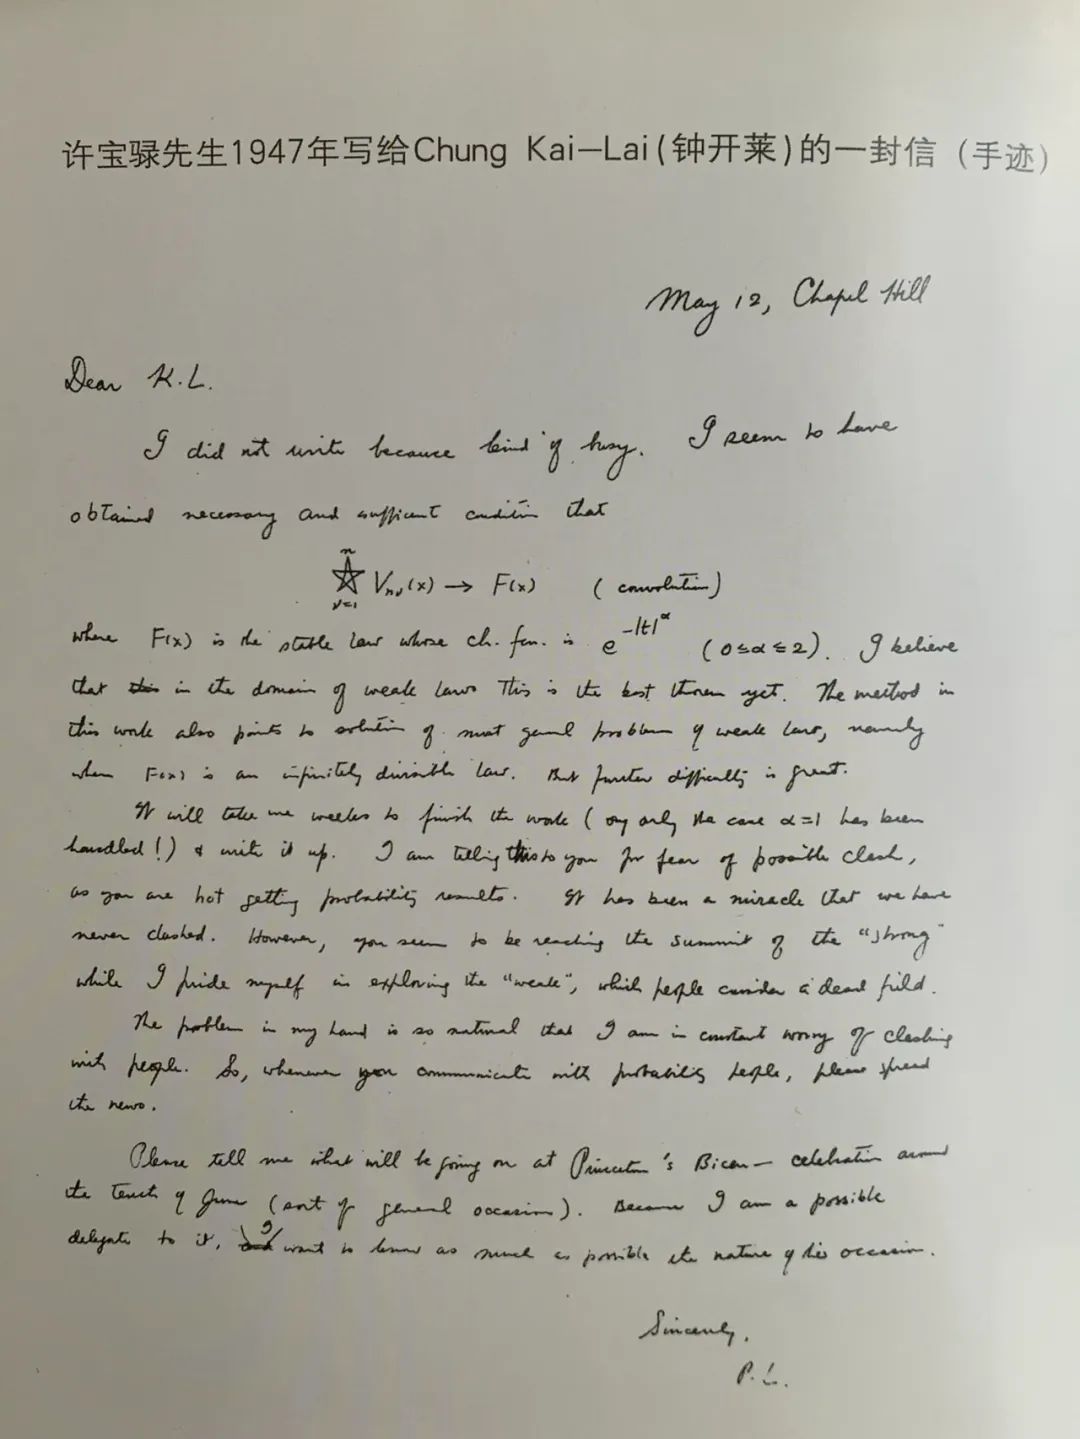 许宝騄先生1947年写给Chung Kai-Lai(钟开莱)的一封信（手迹）
May 12, Chapel Hill
Dear K.L.
I did not write because kind of busy. I seem to have
obtained necessary and sufficient condition that
n
☆ Vnν(x) → F(x) (convolution)
ν=1
where F(x) is the stable law whose ch. fcn. is e^{-|t|^α} (0≦α≦2). I believe
that in the domain of weak laws This is the best thorem yet. The method in
this work also points to solution of most genral problem of weak laws, namely
when F(x) is an infinitely divisible law. But further difficulty is great.
It will take me weeks to finish the work ( only the case α=1 has been
handled!) & write it up. I am telling this to you for fear of possible clash,
as you are hot getting probability results. It has been a miracle that we have
never clashed. However, you seem to be reaching the summit of the "strong"
while I pride myself in exploring the "weak", which people consider a dead field.
The problem in my hand is so natural that I am in constant worry of clashing
with people. So, whenever you communicate with probability people, please spread
the news.
Please tell me what will be going on at Princeton's Bicen- celebration around
the tenth of June (sort of general occasion). Because I am a possible
delegate to it, I want to know as much as possible the nature of the occasion.
Sincerely,
P.L.